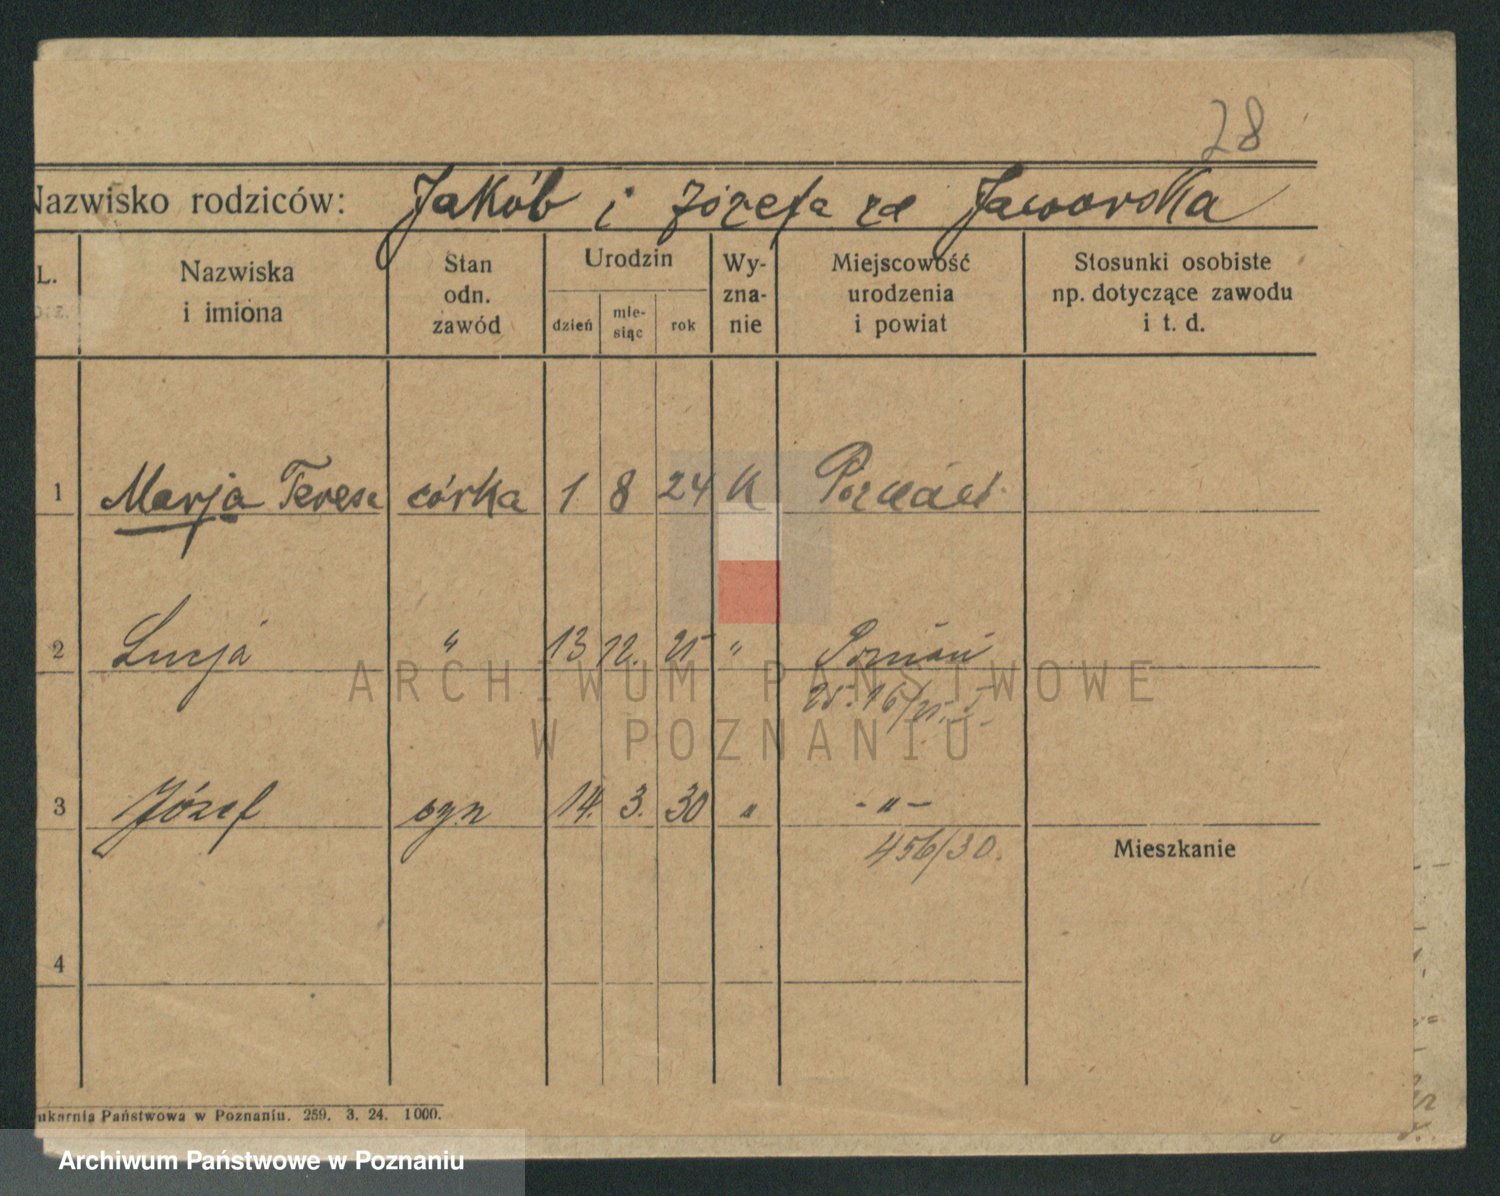 28
Nazwisko rodziców: Jakób i Józefa za Jaworska
L. Nazwiska i imiona Stan odn. zawód Urodzin dzień mie- siąc rok Wy- zna- nie Miejscowość urodzenia i powiat Stosunki osobiste np. dotyczące zawodu i t. d.
1 Marja Teresa córka 1 8 24 k Poznań
2 Lucja " 13 12. 25 " Poznań
3 Józef syn 14. 3. 30 " - " -
456/30.
Mieszkanie
4
ukarnia Państwowa w Poznaniu. 259. 3. 24. 1000.
ARCHIWUM PAŃSTWOWE
W POZNANIU
Archiwum Państwowe w Poznaniu